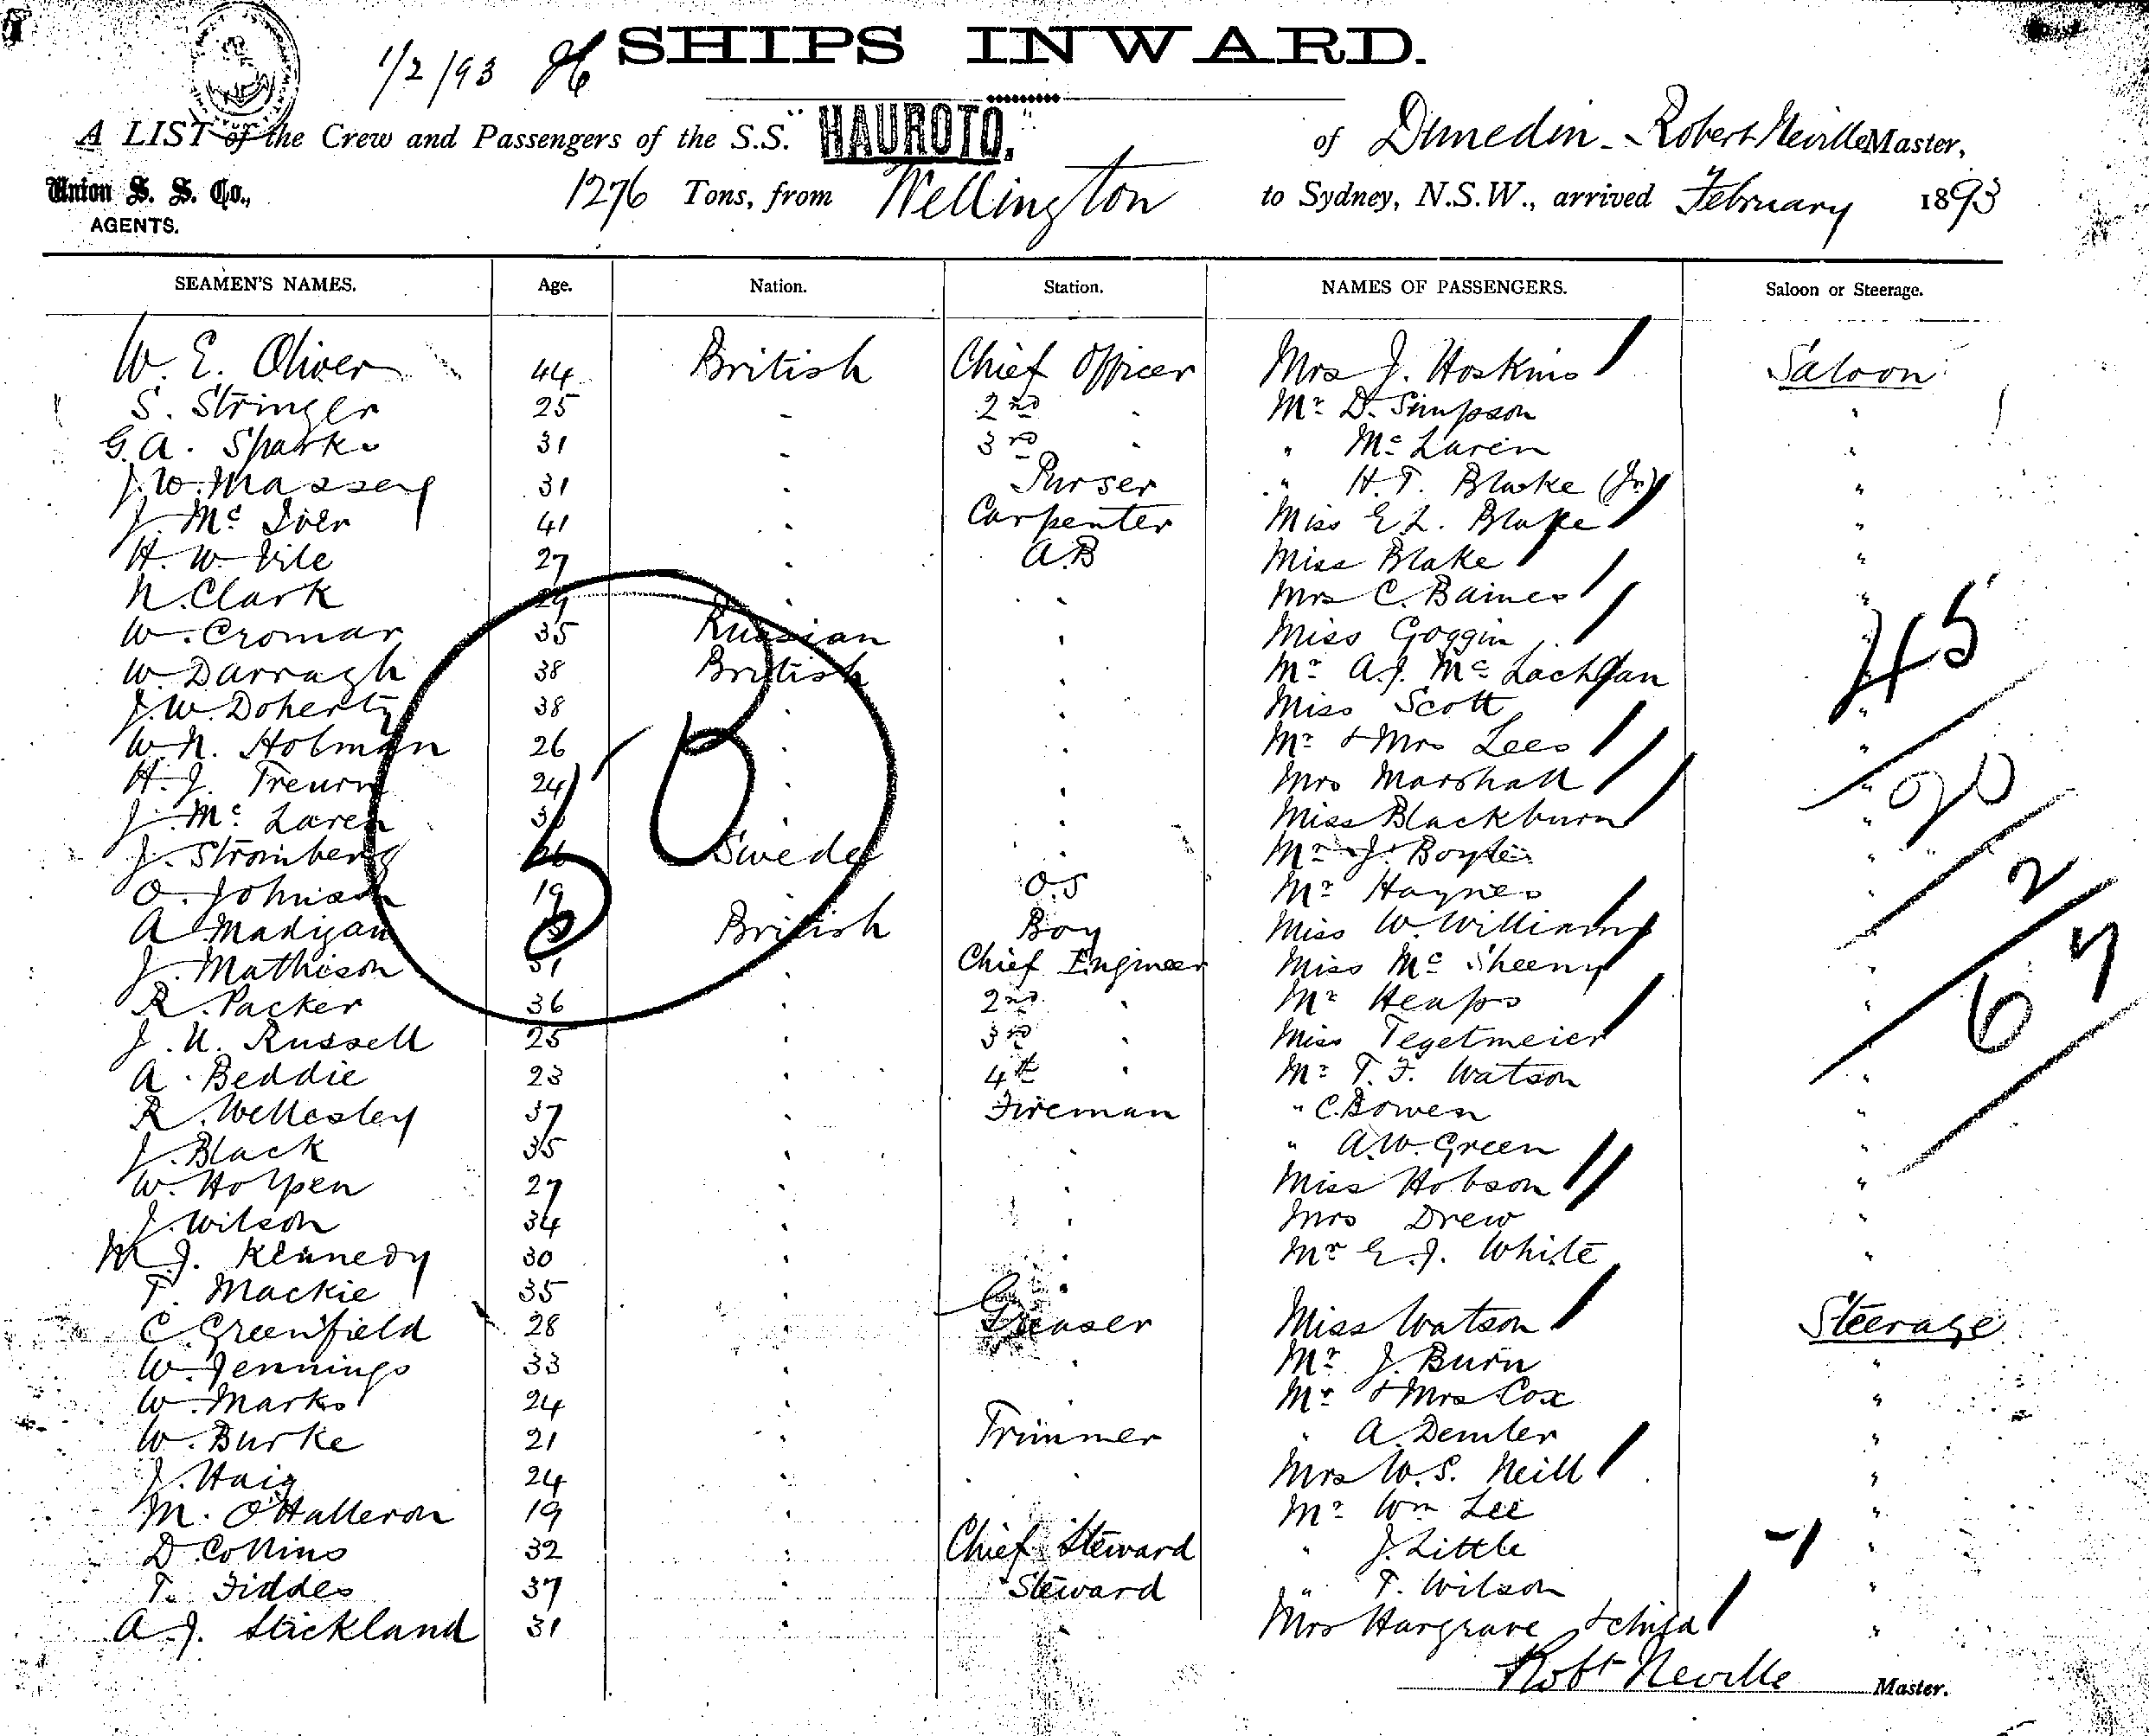 1/2/93
SHIPS INWARD.
A LIST of the Crew and Passengers of the S.S. "HAUROTO," of Dunedin - Robert Neville Master,
Union S. S. Co., AGENTS.
1276 Tons, from Wellington to Sydney, N.S.W., arrived February 1893
SEAMEN'S NAMES. Age. Nation. Station. NAMES OF PASSENGERS. Saloon or Steerage.
W. E. Oliver 44 British Chief Officer Mrs J. Hoskins Saloon
S. Stringer 25 2nd " Mr D. Simpson "
G. A. Sparks 31 3rd " " Mc Laren "
J. W. Massey 31 " Purser " H. T. Blake (Jr) "
J. Mc Iver 41 " Carpenter Miss E L. Blake "
H. W. Vile 27 " A.B Miss Blake "
N. Clark 29 " " Mrs C. Baines "
W. Cromar 35 Russian " Miss Goggin "
W. Darragh 38 British " Mr A. J. Mc Lachlan "
J. W. Doherty 38 " " Miss Scott "
W. N. Holman 26 " " Mr & Mrs Lees "
H. J. 24 " " Mrs Marshall "
J. Mc Laren " " Miss Blackburn "
J. Stromberg 26 Swede " Mr J. Boyle "
O. Johnson 19 " O.S Mr Haynes "
A Madigan British Boy Miss W. Williams "
J. Mathison 51 " Chief Engineer Miss Mc Sheeny "
R. Packer 36 " 2nd " Mr Heaps "
J. U. Russell 25 " 3rd " Miss Tegetmeier "
A. Beddie 23 " 4th " Mr T. F. Watson "
R. Wellesley 37 " Fireman " C. Bowen "
J. Black 35 " " " A. W. Green "
W. Holpen 27 " " Miss Hobson "
J. Wilson 34 " " Mrs Drew "
M J. Kennedy 30 " " Mr E. J. White "
T. Mackie 35 " "
C. Greenfield 28 " Greaser Miss Watson Steerage
W. Jennings 33 " " Mr J. Burn "
W. Marks 24 " " Mr & Mrs Cox "
W. Burke 21 " Trimmer " A. Demler "
J. Haig 24 " " Mrs W. S. Neill "
M. O'Halleron 19 " " Mr Wm Lee "
D. Collins 32 " Chief Steward " J. Little "
T. Fiddes 37 " Steward " T. Wilson "
A. J. Stickland 31 " " Mrs Hargrave & child "
Robt Neville Master.
45
20
2
67